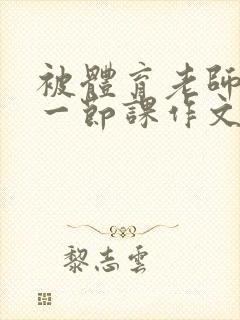 被體育老師
一節課作文
黎志雲